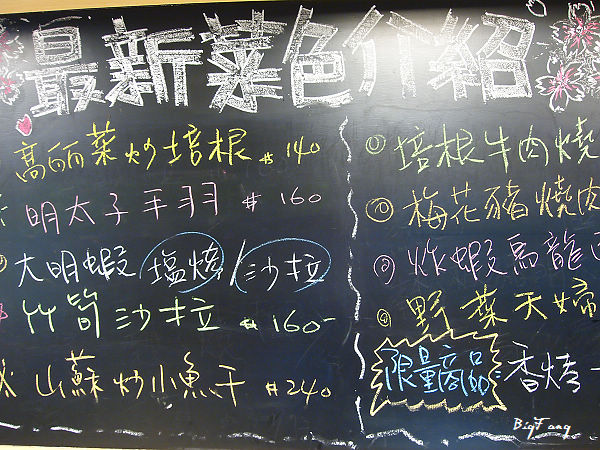 最新菜色介紹
高麗菜炒培根 $140
明太子手羽 $160
大明蝦 塩燒/沙拉
竹筍沙拉 $160-
山蘇炒小魚干 $240
① 培根牛肉燒
② 梅花豬燒肉
③ 炸蝦烏龍
④ 野菜天婦
限量商品 香烤
BigFang